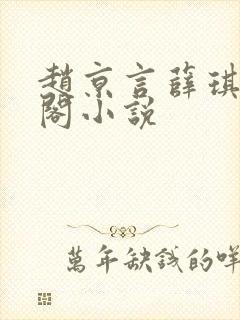 趙京言薛琪
閣小説
萬年缺錢的咩